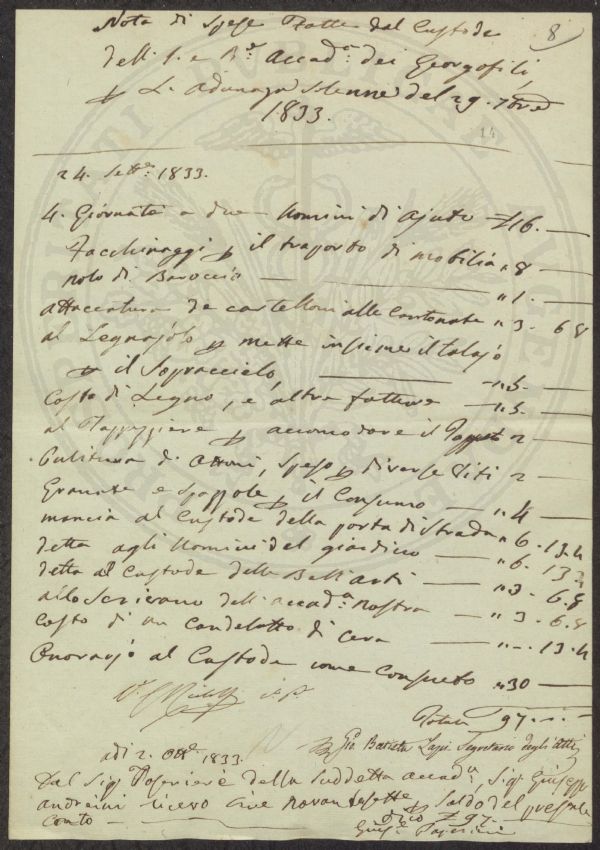 Nota di Spese Fatte dal Custode
8
dell' I. e R.e Accad.a dei Georgofili,
p L. Adunaza Solenne del 29. 7bre
1833.
14
24. Sett.e 1833.
4. Giornate a due Uomini di Ajuto £ 16. —
Facchinaggi p il traporto di mobilia „ 8 —
nolo di Baroccio — „ 1. —
attaccatura de cartelloni alle Cantonate „ 3. 6.8
al Legnajolo p mette insieme il talajo
p il Sopraccielo — „ 5. —
Costo di Legno, e altre fatture — „ 5. —
al Tappezziere p accomodare il Tappeto 2 —
Pulitura di Attoni, Spese p diverse Siti 2 —
Granate e Spazzole p il Consumo — „ 4 —
mancia al Custode della porta di Strada „ 6. 13.4
detta agli Uomini del giardino — „ 6. 13.
detta al Custode delle Bell'arti — „ 3. 6.8
allo Scrivano dell' accad.a Nostra — „ 3. 6.8
Costo di un Candelotto di Cera — „ -. 13.4
Onorario al Custode come Consueto „ 30 —
Totale £ 97. -. -
Gio. Batista Lapi Segretario degli Atti
adi 2. Ott.e 1833.
Dal Sig.r Tesoriere della Suddetta accad.a, Sig.r Giuseppe
andreini ricevo Lire Novantasette p Saldo del presente
conto — dico £ 97. —
Gius.e